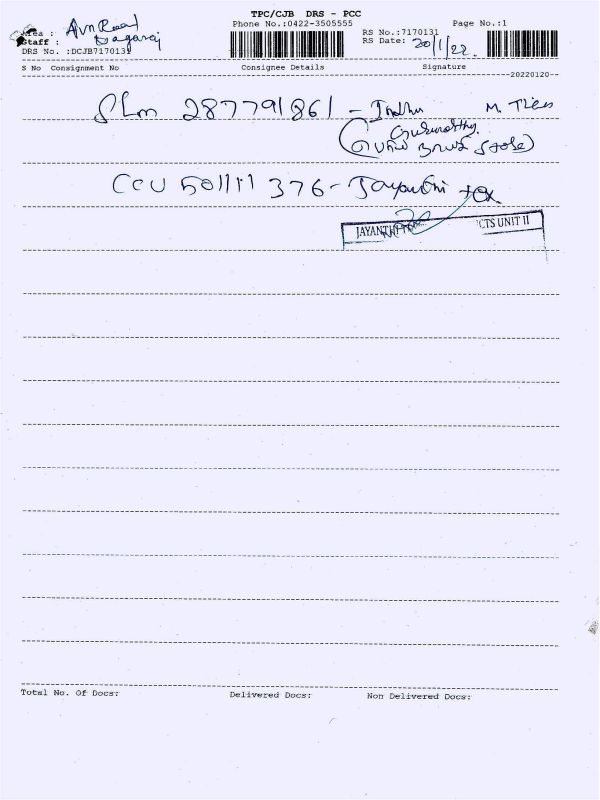 TPC/CJB DRS - PCC
Phone No.:0422-3505555 Page No.:1
Area : Avn Road
Staff : Nagaraj
DRS No. :DCJB7170131
RS No.:7170131
RS Date: 20/1/22.
S No Consignment No Consignee Details Signature
20220120
Slm 287791861 - Indhu M. Tiles
CCU 501111 376 - Jayanthi tex
JAYANTHI CTS UNIT II
Total No. Of Docs: Delivered Docs: Non Delivered Docs: